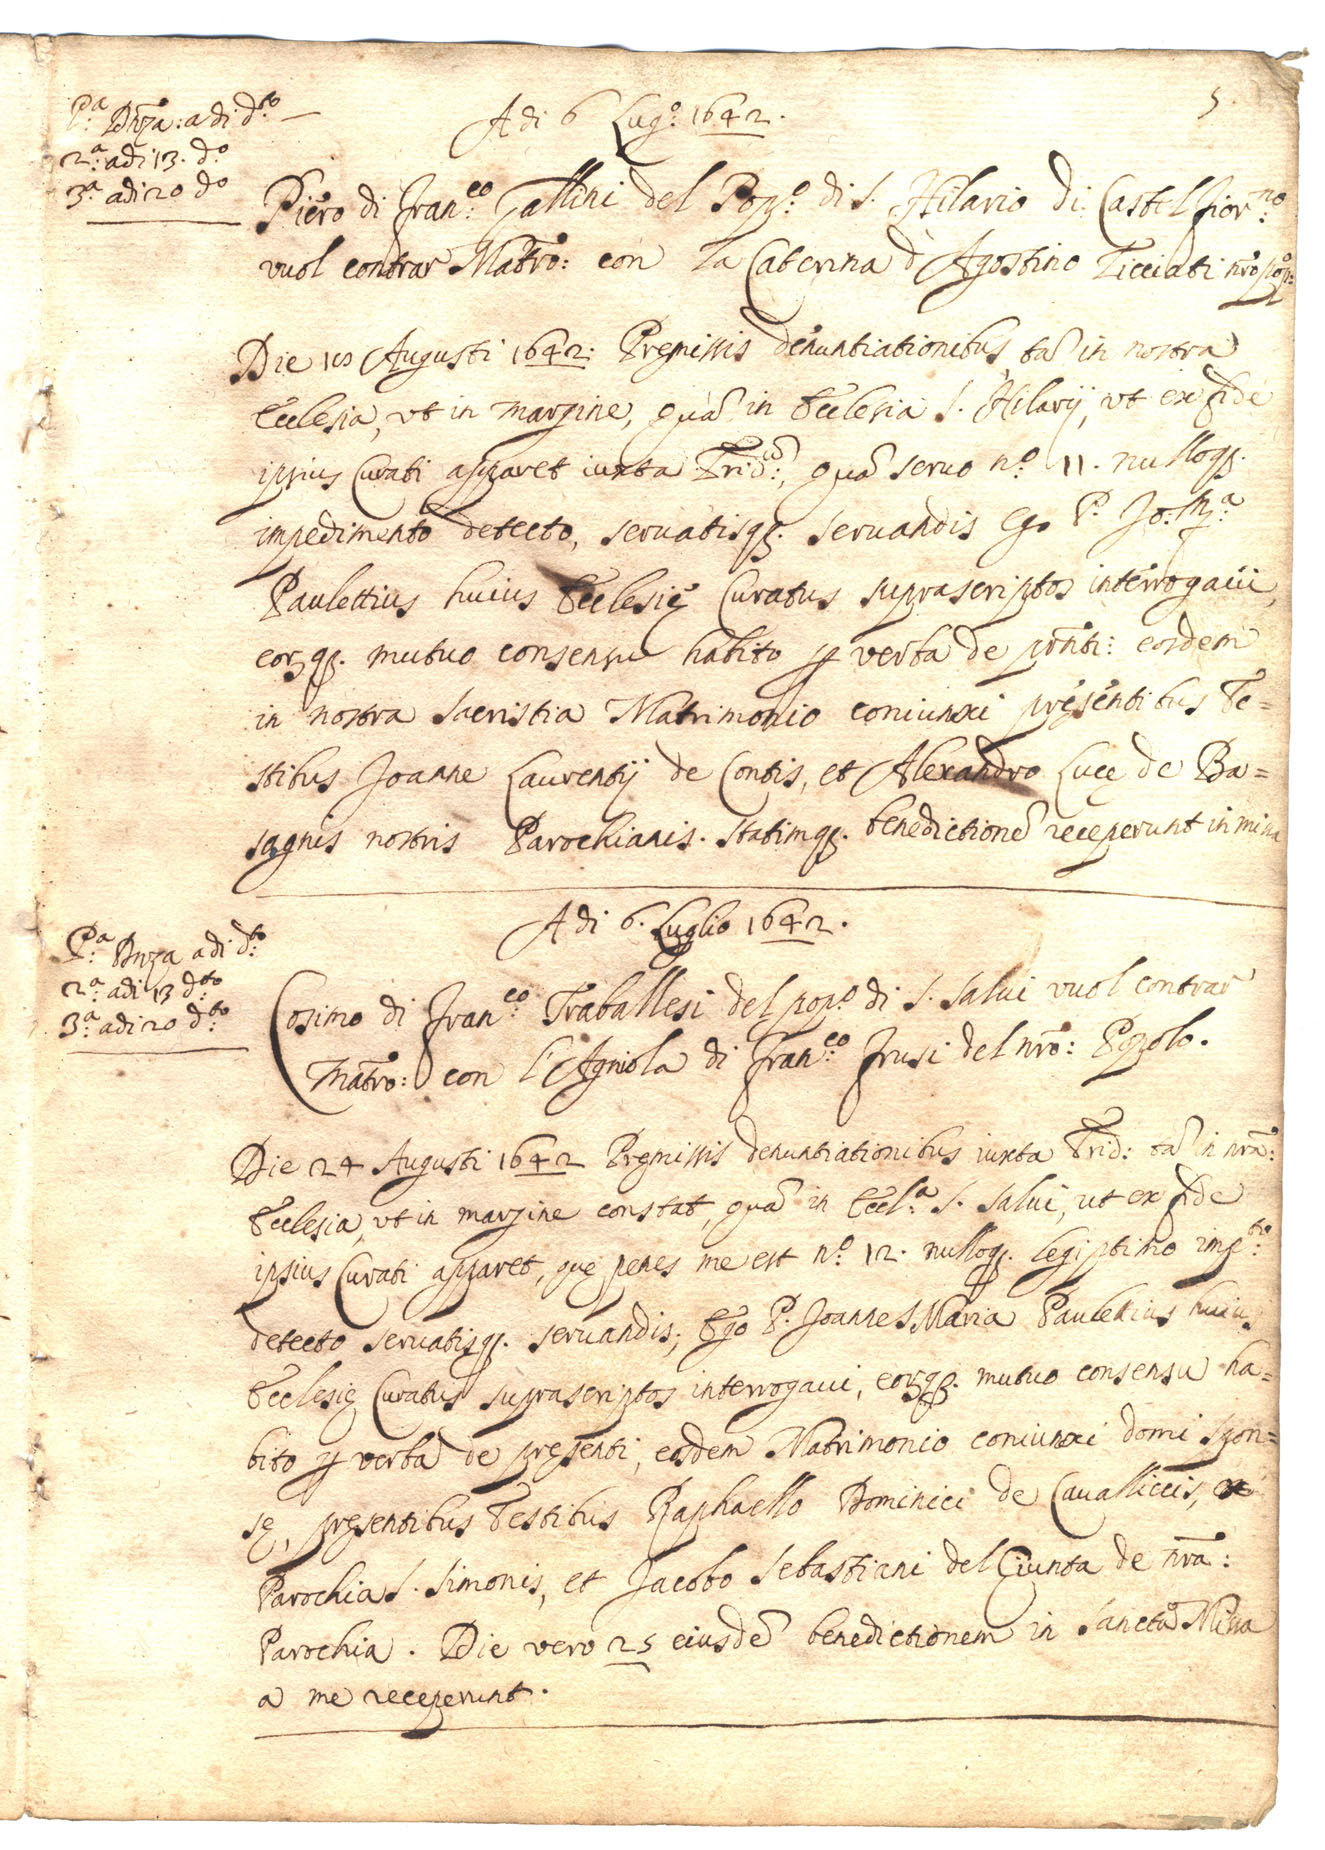 5
P.ª Dnza: adi d.to
2.ª adi 13. d.o
3.ª adi 20 d.o
Adi 6 Lug.o 1642.
Piero di Fran.co Gallini del Pop.o di S. Hilario di Castel fior.no
vuol contrar Matro: con la Caterina d'Agostino Ticciati nro pop:
Die 10 Augusti 1642: Premissis denuntiationibus ta in nostra
Ecclesia, vt in margine, qua in Ecclesia S. Hilarij, vt ex fide
ipsius Curati apparet iuxta Trid., qua seruo n.o 11. nulloq.
impedimento detecto, seruatisq. seruandis Ego P. Jo: M.ª
Paulettius huius Ecclesię Curatus suprascriptos interrogaui,
eorq. mutuo consensu habito p verba de pnti: eosdem
in nostra sacristia Matrimonio coniunxi pręsentibus Te=
stibus Joanne Laurentij de Contis, et Alexandro Lucę de Ba=
sagnis nostris Parochianis. statimq. benedictione receperunt in missa
P.ª Dnza adi d.to
2.ª adi 13 d.to
3.ª adi 20 d.to
Adi 6. Luglio 1642.
Cosimo di Fran.co Traballesi del pop.o di S. Salui vuol contrar
Matro: con l'Agniola di Fran.co Frusi del nro: Popolo.
Die 24 Augusti 1642 Pręmissis denuntiationibus iuxta Trid: ta in nra:
Ecclesia, vt in margine constat, qua in Eccl.ª S. Salui, ut ex fide
ipsius Curati apparet, quę penes me est n.o 12. nulloq. legiptimo imp.to
detecto seruatisq. seruandis; Ego P. Joannes Maria Paulettius huius
Ecclesię Curatus suprascriptos interrogaui, eorq. mutuo consensu ha=
bito p verba de pręsenti, eosdem Matrimonio coniunxi domi spon=
sę, pręsentibus Testibus Raphaello Dominici de Cauallicis,
Parochia S. Simonis, et Jacobo Sebastiani del Giunta de nra:
Parochia. Die vero 25 eiusde benedictionem in Sancta Missa
a me receperunt.